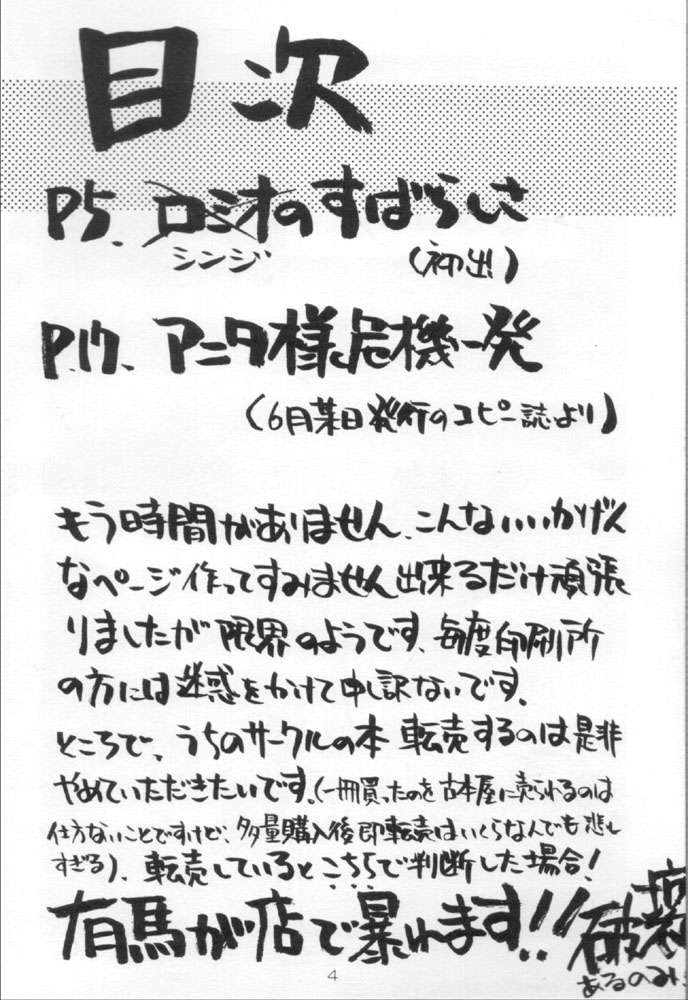 目次
P5. ロミオのすばらしさ
シンジ
(初出)
P.17. アニタ様危機一発
(6月某日発行のコピー誌より)
もう時間がありません、こんないいかげん
なページ作ってすみません出来るだけ頑張
りましたが限界のようです、毎度印刷所
の方には迷惑をかけて申し訳ないです。
ところで、うちのサークルの本転売するのは是非
やめていただきたいです。(一冊買ったのを古本屋に売られるのは
仕方ないことですけど、多量購入後即転売はいくらなんでも悲し
すぎる)、転売しているとこちらで判断した場合!
有馬が店で暴れます!!破壊
あるのみ
4